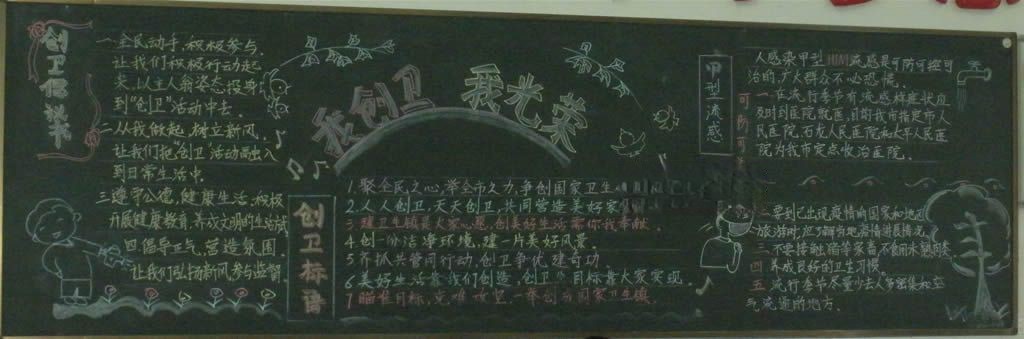 创卫倡议书
一、全民动手,积极参与,
让我们积极行动起
来,以主人翁姿态投身
到“创卫”活动中去。
二、从我做起,树立新风,
让我们把“创卫”活动融入
到日常生活中
三、遵守公德,健康生活,积极
开展健康教育,养成文明的生活
四、倡导卫气,营造氛围,
让我们弘扬新风参与监督
我创卫 我光荣
创卫标语
1.聚全民之心,举全市之力,争创国家卫生
2.人人创卫,天天创卫,共同营造美好家
3.建卫生镇是人家心愿,创美好生活需你我奉献.
4.创一份洁净环境,建一片美好风景.
5.齐抓共管同行动,创卫争优建奇功
6.美好生活靠我们创造,创卫目标靠大家实现.
7.瞄准目标,克难攻坚,一举创成国家卫生镇
甲型流感
可防可
人感染甲型H1N1流感是可防可控可
治的,广大群众不必恐慌.
一.在流行季节有流感样症状应
及时到医院就医,目前我市指定市人
民医院,石龙人民医院和太平人民医
院为我市定点收治医院.
二.要到已出现疫情的国家和地区
旅游时,应了解当地疫情进展情况.
三.不要接触猪等家畜,不食用未熟
四.养成良好的卫生习惯.
五.流行季节尽量少去人多密集和空
气流通的地方.